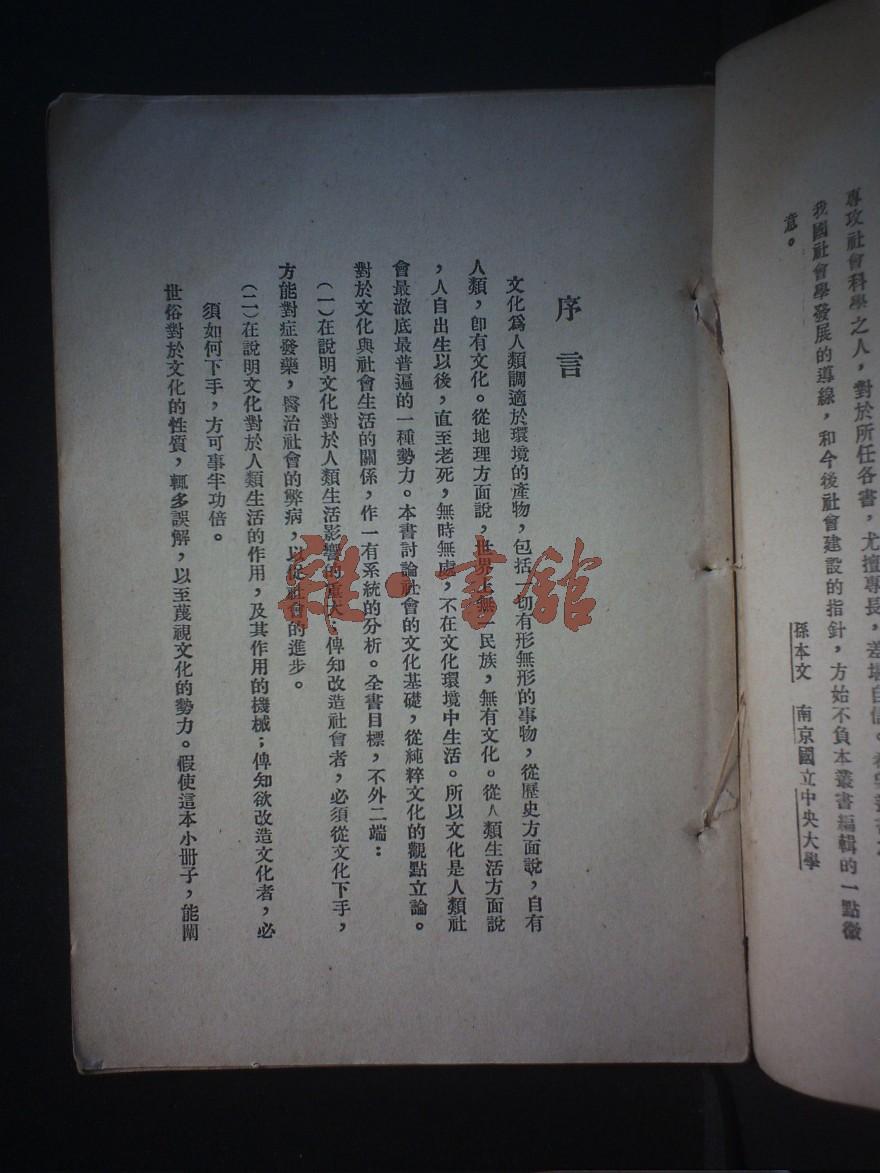 專攻社會科學之人，對於所任各書，尤擅專長，差堪自信。
我國社會學發展的導線，和今後社會建設的指針，方始不負本叢書編輯的一點微
意。
孫本文　南京國立中央大學
序言
文化爲人類調適於環境的產物，包括一切有形無形的事物，從歷史方面說，自有
人類，卽有文化。從地理方面說，世界上無一民族，無有文化。從人類生活方面說
，人自出生以後，直至老死，無時無處，不在文化環境中生活。所以文化是人類社
會最澈底最普遍的一種勢力。本書討論社會的文化基礎，從純粹文化的觀點立論。
對於文化與社會生活的關係，作一有系統的分析。全書目標，不外二端：
（一）在說明文化對於人類生活影響的重大；俾知改造社會者，必須從文化下手，
方能對症發藥，醫治社會的弊病，以促社會的進步。
（二）在說明文化對於人類生活的作用，及其作用的機械；俾知欲改造文化者，必
須如何下手，方可事半功倍。
世俗對於文化的性質，輒多誤解，以至蔑視文化的勢力。假使這本小冊子，能闡
雜·書館